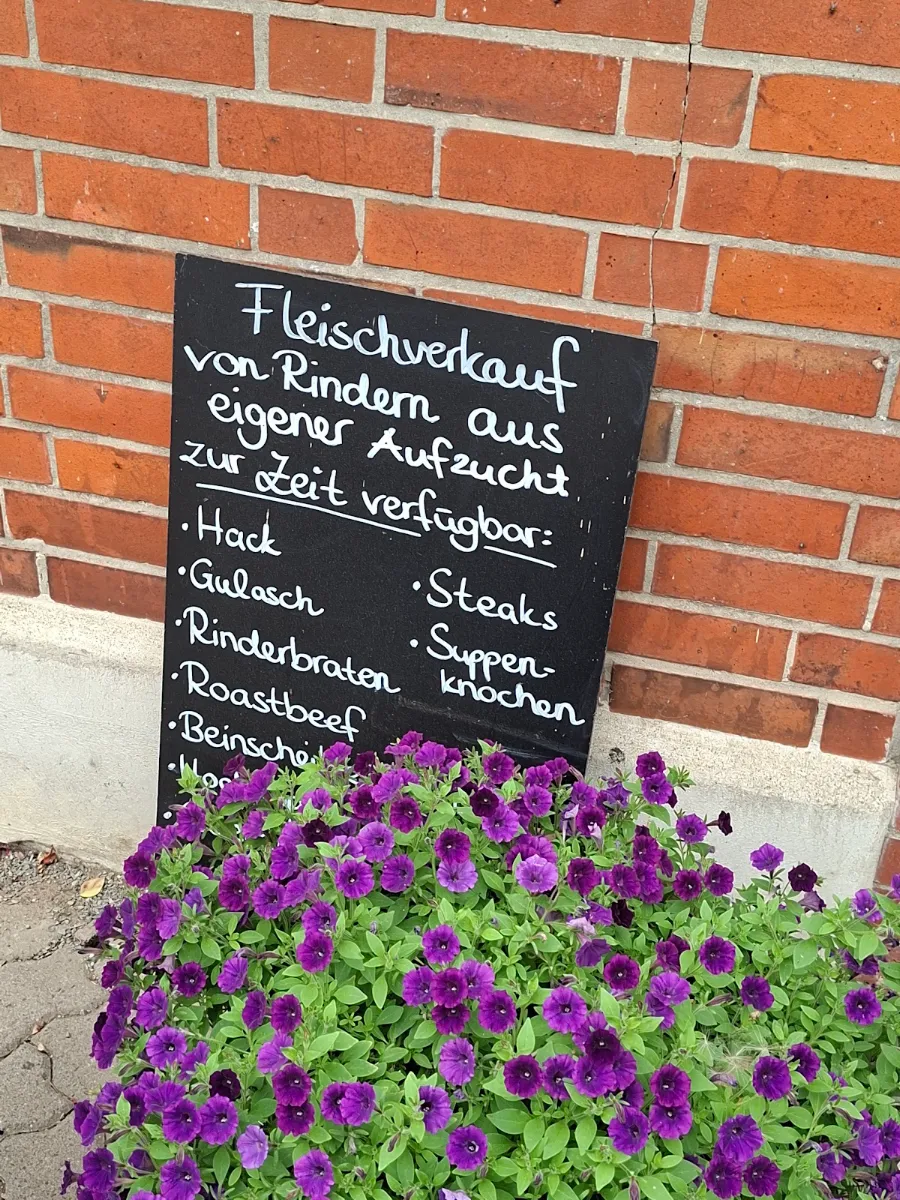 Fleischverkauf
von Rindern aus
eigener Aufzucht
zur Zeit verfügbar:
· Hack
· Gulasch
· Rinderbraten
· Roastbeef
· Steaks
· Suppen-
knochen